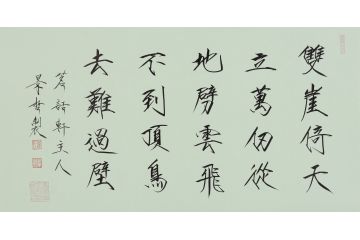 雙崖倚天
立萬仞從
地劈雲飛
不到頂鳥
去難過壁
茗語軒主人